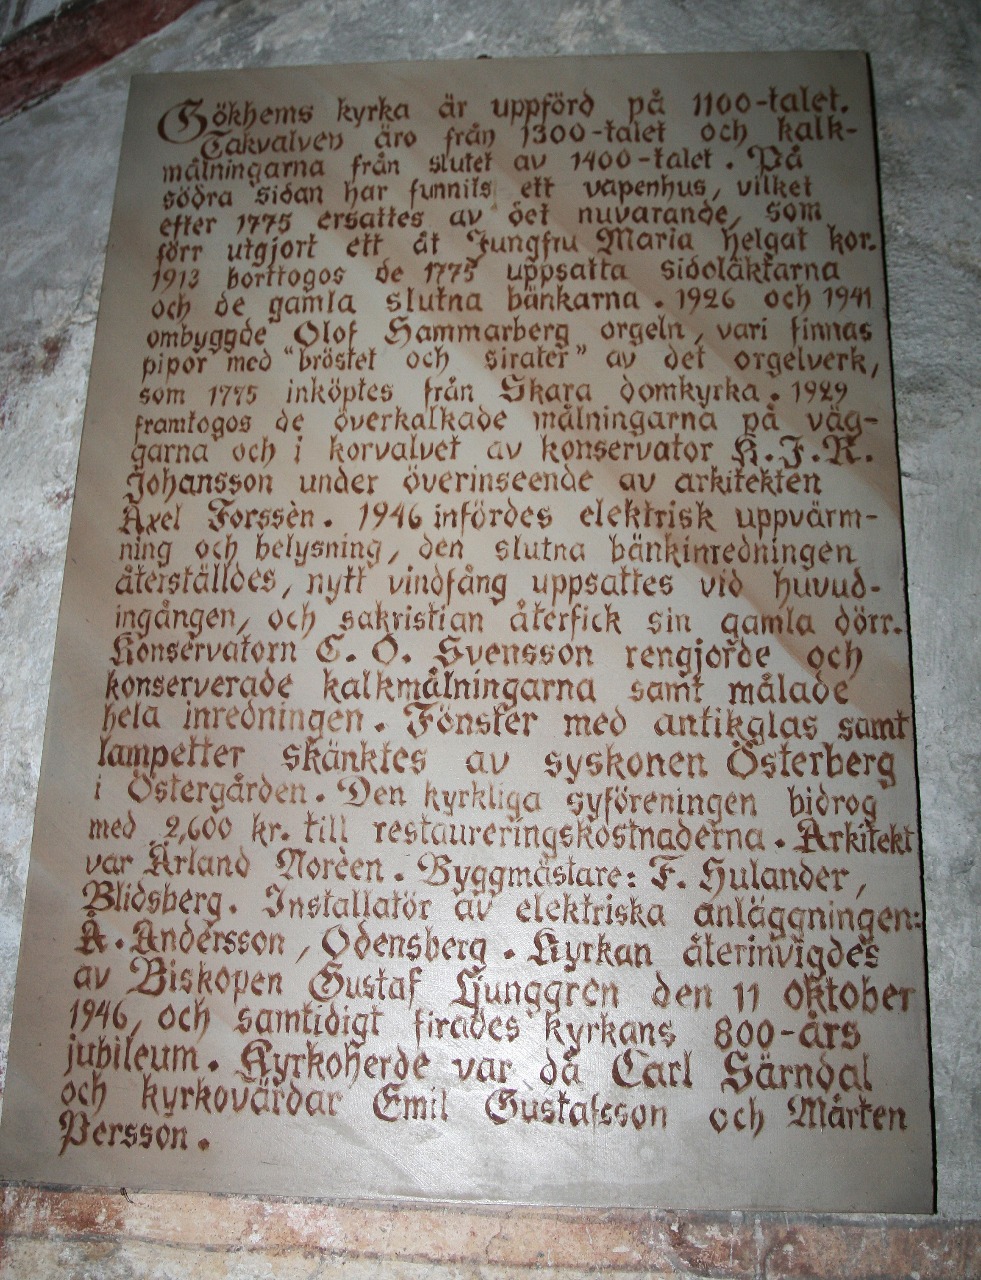 Gökhems kyrka är uppförd på 1100-talet.
Takvalven äro från 1300-talet och kalk-
målningarna från slutet av 1400-talet. På
södra sidan har funnits ett vapenhus, vilket
efter 1775 ersattes av det nuvarande, som
förr utgjort ett åt Jungfru Maria helgat kor.
1913 borttogos de 1775 uppsatta sidoläktarna
och de gamla slutna bänkarna. 1926 och 1941
ombyggde Olof Hammarberg orgeln, vari finnas
pipor med "bröstet och sirater" av det orgelverk,
som 1775 inköptes från Skara domkyrka. 1929
framtogos de överkalkade målningarna på väg-
garna och i korvalvet av konservator K.J.R.
Johansson under överinseende av arkitekten
Axel Forssèn. 1946 infördes elektrisk uppvärm-
ning och belysning, den slutna bänkinredningen
återställdes, nytt vindfång uppsattes vid huvud-
ingången, och sakristian återfick sin gamla dörr.
Konservatorn C. O. Svensson rengjorde och
konserverade kalkmålningarna samt målade
hela inredningen. Fönster med antikglas samt
lampetter skänktes av syskonen Österberg
i Östergården. Den kyrkliga syföreningen bidrog
med 2,600 kr. till restaureringskostnaderna. Arkitekt
var Ärland Norèen. Byggmästare: F. Hulander,
Blidsberg. Installatör av elektriska anläggningen:
Å. Andersson, Odensberg. Kyrkan återinvigdes
av Biskopen Gustaf Ljunggren den 11 oktober
1946, och samtidigt firades kyrkans 800-års
jubileum. Kyrkoherde var då Carl Särndal
och kyrkovärdar Emil Gustafsson och Mårten
Persson.